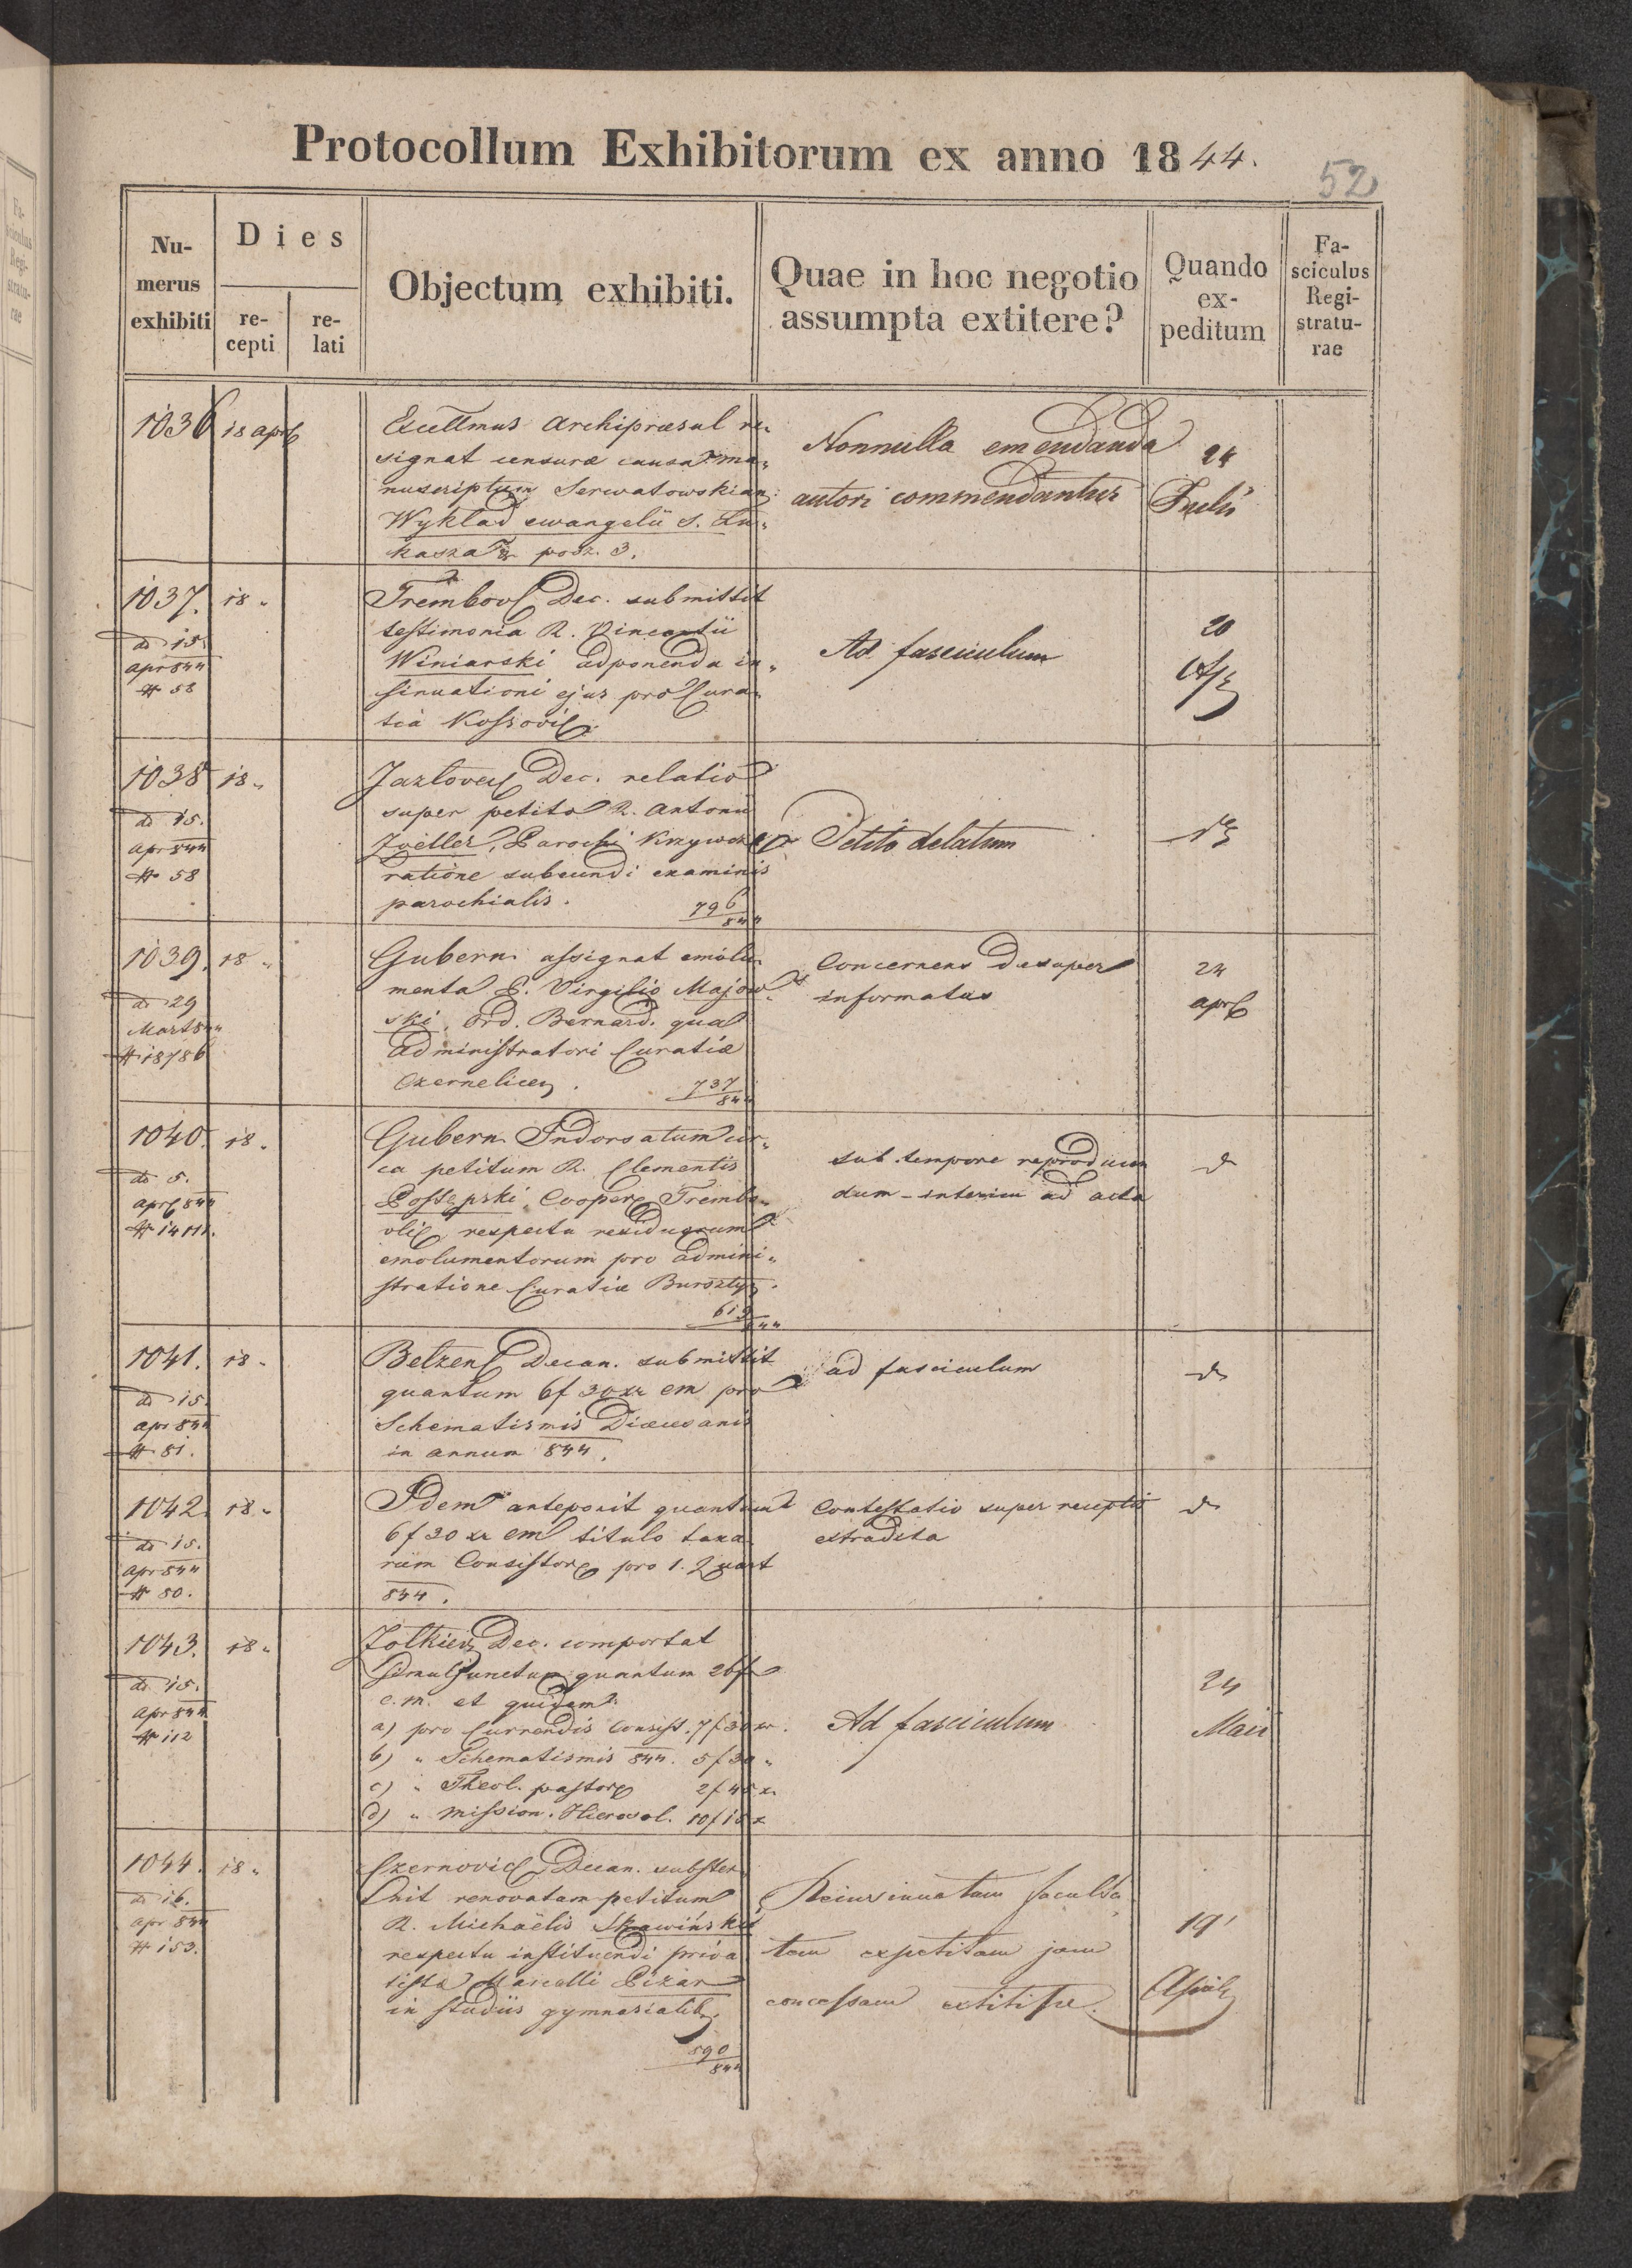 Protocollum Exhibitorum ex anno 1844.
52
Numerus exhibiti
Dies
recepti
relati
Objectum exhibiti.
Quae in hoc negotio
assumpta extitere?
Quando
ex-
peditum
Fa-
sciculus
Regi-
stratu-
rae
1036 18 apr
Excellmus Archipraesul re-
signat censurae causa ma-
nuscriptum Serwatowskian:
Wykład ewangelii S. Łu-
kasza posz. 3.
Nonnulla emendanda
autori commendantur
24
Julii
1037. 18 "
dto 15.
Apr 844
# 58
Trembovl Dec. submittit
testimonia R. Vincentii
Winiarski adponenda in-
sinuationi ejus pro Cura-
tia Kossovi
Ad fasciculum
20
1038 18 "
dto 15.
Apr 844
# 58
Jazlovec Dec. relatio
super petito R. Antonii
Zoeller, Parochi Krzywcz
ratione subeundi examinis
parochialis.
796/844
Petito delatum
1039. 18 "
dto 29
Mart 844
# 18786
Gubern. assignat emolu-
menta P. Virgilio Majow-
ski, Ord. Bernard. qua
administratori Curatiae
Czernelice
737/844
Concernens desuper
informatus
24
apr
1040. 18 "
dto 5.
Apr 844
Gubern. Indorsatum cir-
ca petitum R. Clementis
Cooper Trembo-
vlic respectu residuorum
emolumentorum pro admini-
stratione Curatiae Bursztyn.
619/844
sub tempore reproducen
dum - interim ad acta
dto
1041. 18 "
dto 15.
Apr 844
# 81.
Belzens Decan. submittit
quantum 6f 30xr cm pro
Schematismis Dioecesanis
in annum 844.
ad fasciculum
dto
1042. 18 "
dto 15.
Apr 844
# 80.
Idem anteponit quantum
6f 30 xr cm titulo taxa-
rum Consistor pro 1. Quart
844.
Contestatio super receptis
extradita
dto
1043. 18 "
dto 15.
Apr 844
# 112
Zolkiew Dec. comportat
simuljunctum quantum 26f
c.m. et quidem
a) pro Currendis Consist. 7f 30 xr.
b) " Schematismis 844. 5f 30 "
c) " Theol. pastor 2f 45 x.
d) " Mission. Hierosol. 10f 15 x
Ad fasciculum
24
Maii
1044. 18 "
dto 16.
Apr 844
# 153.
Czernovic Decan. subster-
nit renovatam petitum
R. Michaëlis Skawiński
respectu instituendi priva
tista Marcelli Pizar
in studiis gymnasialib.
590/844
Reinsinuatam faculta-
tem expetitam jam
concessam extitisse.
19
April